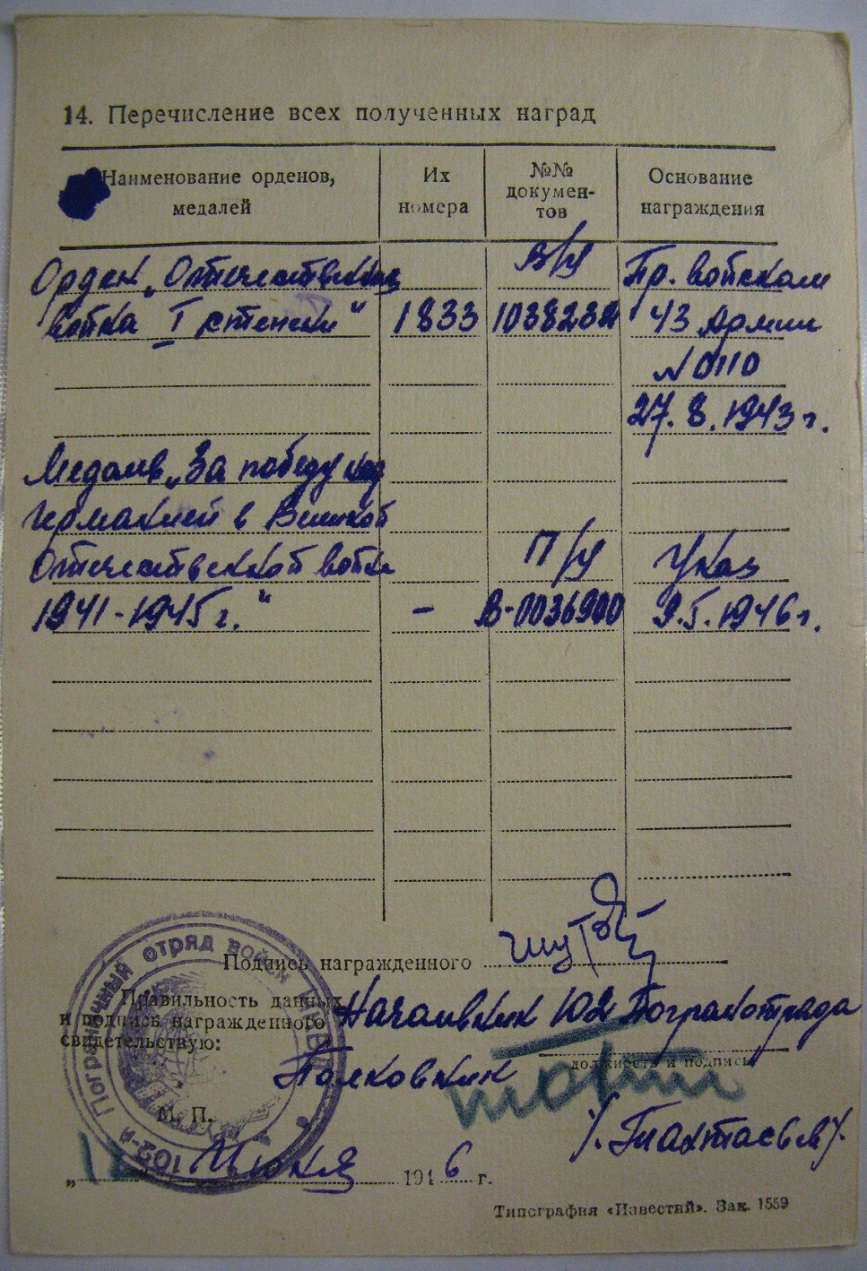 14. Перечисление всех полученных наград
Наименование орденов, медалей
Их номера
№№ документов
Основание награждения
в/н Пр. войскам
Орден „Отечественная
война I степени“ 1833 1038232 43 Армии
№ 0110
27.8.1943 г.
Медаль „За победу над
Германией в Великой
Отечественной войне П/н Указ
1941-1945 г.“ - В-0036900 9.5.1946 г.
Подпись награжденного
Правильность данных
и подпись награжденного
свидетельствую:
Начальник 102 Погранотряда
должность и подпись
Полковник
М. П.
„ “ Июня 1946 г.
102-й Пограничный отряд войск
Типография «Известий». Зак. 1559